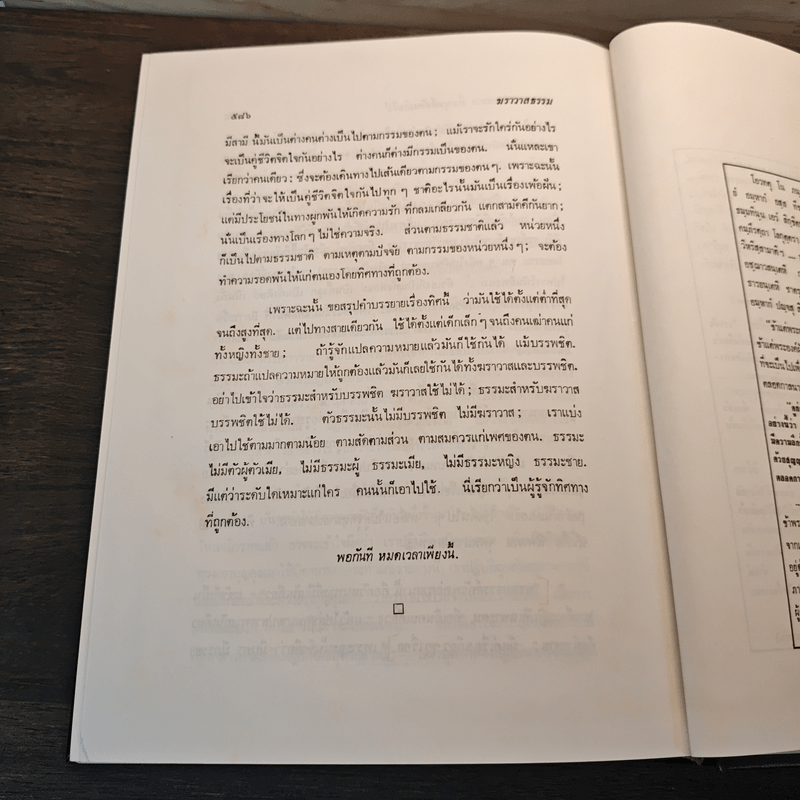 ๕๘๖
ฆราวาสธรรม
มีสามี นี้มันเป็นต่างคนต่างเป็นไปตามกรรมของตน ; แม้เราจะรักใคร่กันอย่างไร
จะเป็นคู่ชีวิตจิตใจกันอย่างไร ต่างคนก็ต่างมีกรรมเป็นของตน. นั่นแหละเขา
เรียกว่าคนเดียว ; ซึ่งจะต้องเดินทางไปเส้นเดียวตามกรรมของตน ๆ. เพราะฉะนั้น
เรื่องที่ว่าจะให้เป็นคู่ชีวิตจิตใจกันไปทุก ๆ ชาติอะไรนั้นมันเป็นเรื่องเพ้อฝัน ;
แต่มีประโยชน์ในทางผูกพันให้เกิดความรัก ที่กลมเกลียวกัน แตกสามัคคีกันยาก ;
นั่นเป็นเรื่องทางโลก ๆ ไม่ใช่ความจริง. ส่วนตามธรรมชาติแล้ว หน่วยหนึ่ง
ก็เป็นไปตามธรรมชาติ ตามเหตุตามปัจจัย ตามกรรมของหน่วยหนึ่ง ๆ ; จะต้อง
ทำความรอดพ้นให้แก่ตนเองโดยทิศทางที่ถูกต้อง.
เพราะฉะนั้น ขอสรุปคำบรรยายเรื่องทิศนี้ ว่ามันใช้ได้ตั้งแต่ต่ำที่สุด
จนถึงสูงที่สุด. แต่ไปทางสายเดียวกัน ใช้ได้ตั้งแต่เด็กเล็ก ๆ จนถึงคนเฒ่าคนแก่
ทั้งหญิงทั้งชาย ; ถ้ารู้จักแปลความหมายแล้วมันก็ใช้กันได้ แม้บรรพชิต.
ธรรมะถ้าแปลความหมายให้ถูกต้องแล้วมันก็เลยใช้กันได้ทั้งฆราวาสและบรรพชิต.
อย่าไปเข้าใจว่าธรรมะสำหรับบรรพชิต ฆราวาสใช้ไม่ได้ ; ธรรมะสำหรับฆราวาส
บรรพชิตใช้ไม่ได้. ตัวธรรมะนั้นไม่มีบรรพชิต ไม่มีฆราวาส ; เราแบ่ง
เอาไปใช้ตามมากตามน้อย ตามสัดตามส่วน ตามสมควรแก่เพศของตน. ธรรมะ
ไม่มีตัวผู้ตัวเมีย, ไม่มีธรรมะผู้ ธรรมะเมีย, ไม่มีธรรมะหญิง ธรรมะชาย.
มีแต่ว่าระดับใดเหมาะแก่ใคร คนนั้นก็เอาไปใช้. นี่เรียกว่าเป็นผู้รู้จักทิศทาง
ที่ถูกต้อง.
พอกันที หมดเวลาเพียงนี้.